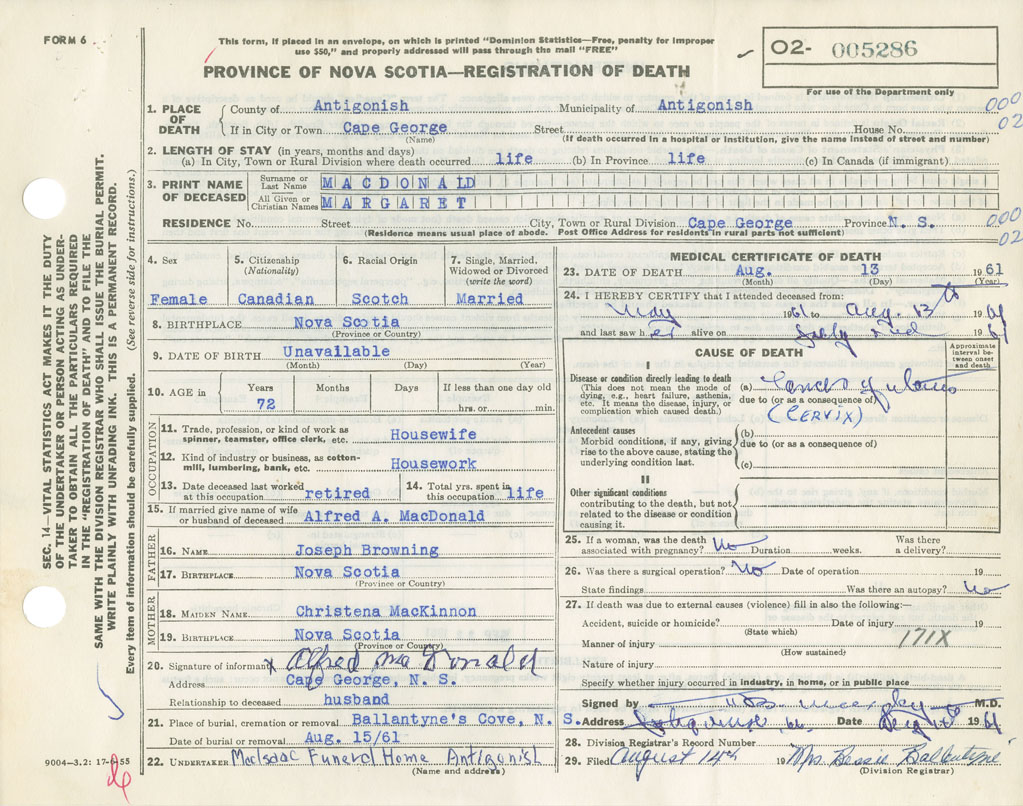 FORM 6
This form, if placed in an envelope, on which is printed "Dominion Statistics—Free, penalty for improper
use $50," and properly addressed will pass through the mail "FREE"
PROVINCE OF NOVA SCOTIA—REGISTRATION OF DEATH
02- 005286
For use of the Department only
1. PLACE OF DEATH
County of Antigonish Municipality of Antigonish 000
If in City or Town Cape George Street House No. 02
(Name) (If death occurred in a hospital or institution, give the name instead of street and number)
2. LENGTH OF STAY (in years, months and days)
(a) In City, Town or Rural Division where death occurred life (b) In Province life (c) In Canada (if immigrant)
3. PRINT NAME OF DECEASED
Surname or Last Name MACDONALD
All Given or Christian Names MARGARET
RESIDENCE No. Street City, Town or Rural Division Cape George Province N. S. 000
(Residence means usual place of abode. Post Office Address for residents in rural parts not sufficient) 02
4. Sex
Female
5. Citizenship (Nationality)
Canadian
6. Racial Origin
Scotch
7. Single, Married, Widowed or Divorced (write the word)
Married
8. BIRTHPLACE Nova Scotia
(Province or Country)
9. DATE OF BIRTH Unavailable
(Month) (Day) (Year)
10. AGE in Years Months Days If less than one day old
72 hrs. or min.
OCCUPATION
11. Trade, profession, or kind of work as spinner, teamster, office clerk, etc. Housewife
12. Kind of industry or business, as cotton-mill, lumbering, bank, etc. Housework
13. Date deceased last worked at this occupation retired
14. Total yrs. spent in this occupation life
15. If married give name of wife or husband of deceased Alfred A. MacDonald
FATHER
16. NAME Joseph Browning
17. BIRTHPLACE Nova Scotia
(Province or Country)
MOTHER
18. MAIDEN NAME Christena MacKinnon
19. BIRTHPLACE Nova Scotia
(Province or Country)
20. Signature of informant X Alfred MacDonald
Address Cape George, N. S.
Relationship to deceased husband
21. Place of burial, cremation or removal Ballantyne's Cove, N. S.
Date of burial or removal Aug. 15/61
22. UNDERTAKER MacIsaac Funeral Home Antigonish
(Name and address)
MEDICAL CERTIFICATE OF DEATH
23. DATE OF DEATH Aug. 13 1961
(Month) (Day) (Year)
24. I HEREBY CERTIFY that I attended deceased from:
May 1961 to Aug. 13th 1961
and last saw her alive on July 1961
CAUSE OF DEATH
Approximate interval between onset and death
I
Disease or condition directly leading to death
(This does not mean the mode of dying, e.g., heart failure, asthenia, etc. It means the disease, injury, or complication which caused death.)
(a) Cancer of uterus
due to (or as a consequence of)
(CERVIX)
Antecedent causes
Morbid conditions, if any, giving rise to the above cause, stating the underlying condition last.
(b)
due to (or as a consequence of)
(c)
II
Other significant conditions
contributing to the death, but not related to the disease or condition causing it.
25. If a woman, was the death associated with pregnancy? No Duration weeks. Was there a delivery?
26. Was there a surgical operation? No Date of operation 19
State findings Was there an autopsy? No
27. If death was due to external causes (violence) fill in also the following:—
Accident, suicide or homicide? Date of injury 19
(State which)
Manner of injury 171X
(How sustained)
Nature of injury
Specify whether injury occurred in industry, in home, or in public place
Signed by M.D.
Address Date 1961
28. Division Registrar's Record Number
29. Filed August 14th 19 Mrs Bessie Ballantyne
(Division Registrar)
SEC. 14 — VITAL STATISTICS ACT MAKES IT THE DUTY
OF THE UNDERTAKER OR PERSON ACTING AS UNDER-
TAKER TO OBTAIN ALL THE PARTICULARS REQUIRED
IN THE "REGISTRATION OF DEATH" AND TO FILE THE
SAME WITH THE DIVISION REGISTRAR WHO SHALL ISSUE THE BURIAL PERMIT.
WRITE PLAINLY WITH UNFADING INK. THIS IS A PERMANENT RECORD.
Every item of information should be carefully supplied. (See reverse side for instructions.)
9004—3.2: 17-6-55